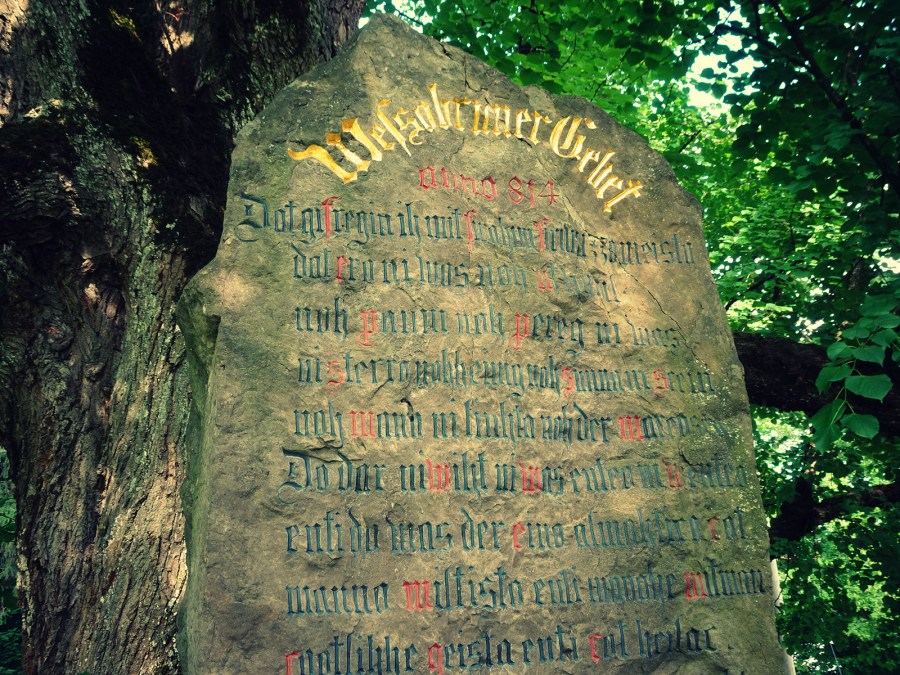 Wessobrunner Gebet
anno 814
Dat gifregin ih mit firahim firiuuizzo meista
dat ero ni was noh ufhimil
noh paum noh pereg ni was
ni sterro nohheinig noh sunna ni scein
noh mano ni liuhta noh der mareo seo
Do dar niwiht ni was enteo ni wenteo
enti do was der eino almahtico cot
manno miltisto enti manake mit man
cootlihhe geista enti cot heilac